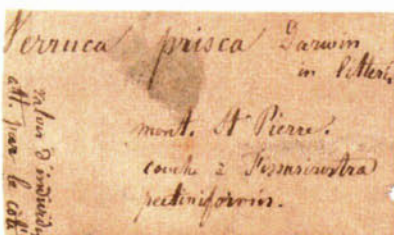 Verruca prisca Darwin
in litteris
mont. St Pierre.
couche à Fissurirostra
pectiniformis.
valves d'individu
att. par le côté